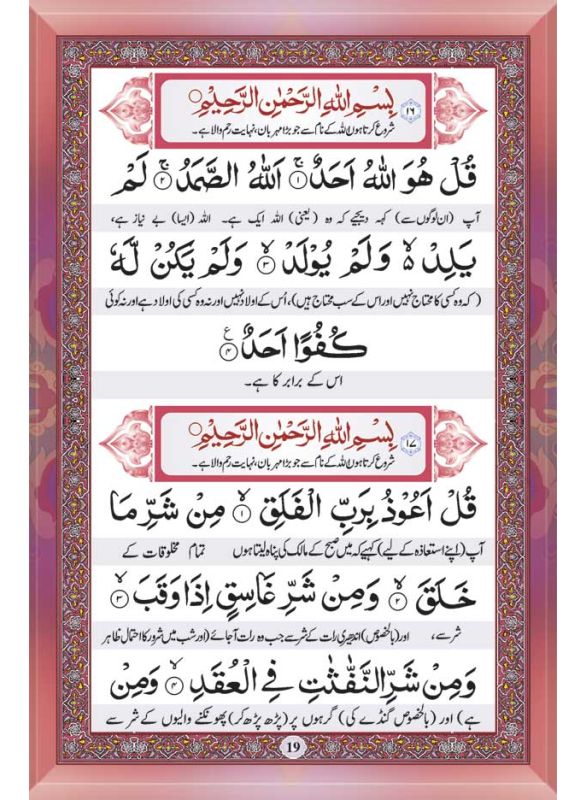 ۱۶ بِسْمِ اللهِ الرَّحْمٰنِ الرَّحِيْمِ
شروع کرتا ہوں اللہ کے نام سے جو بڑا مہربان، نہایت رحم والا ہے۔
قُلْ هُوَ اللهُ اَحَدٌ ۚ ۱ اَللهُ الصَّمَدُ ۚ ۲ لَمْ
آپ (ان لوگوں سے) کہہ دیجیے کہ وہ (یعنی) اللہ ایک ہے۔ اللہ (ایسا) بے نیاز ہے،
يَلِدْ ۙ۬ وَلَمْ يُوْلَدْ ۙ ۳ وَلَمْ يَكُنْ لَّهٗ
(کہ وہ کسی کا محتاج نہیں اور اس کے سب محتاج ہیں)، اُس کے اولاد نہیں اور نہ وہ کسی کی اولاد ہے اور نہ کوئی
كُفُوًا اَحَدٌ ۴ ع
اس کے برابر کا ہے۔
۱۷ بِسْمِ اللهِ الرَّحْمٰنِ الرَّحِيْمِ
شروع کرتا ہوں اللہ کے نام سے جو بڑا مہربان، نہایت رحم والا ہے۔
قُلْ اَعُوْذُ بِرَبِّ الْفَلَقِ ۙ ۱ مِنْ شَرِّ مَا
آپ (اپنے استعاذہ کے لیے) کہیے کہ میں صبح کے مالک کی پناہ لیتا ہوں تمام مخلوقات کے
خَلَقَ ۙ ۲ وَمِنْ شَرِّ غَاسِقٍ اِذَا وَقَبَ ۙ ۳
شر سے، اور (بالخصوص) اندھیری رات کے شر سے جب وہ رات آ جائے (اور شب میں شرور کا احتمال ظاہر
وَمِنْ شَرِّ النَّفّٰثٰتِ فِي الْعُقَدِ ۙ ۴ وَمِنْ
ہے) اور (بالخصوص گنڈے کی) گرہوں پر (پڑھ پڑھ کر) پھونکنے والیوں کے شر سے
19